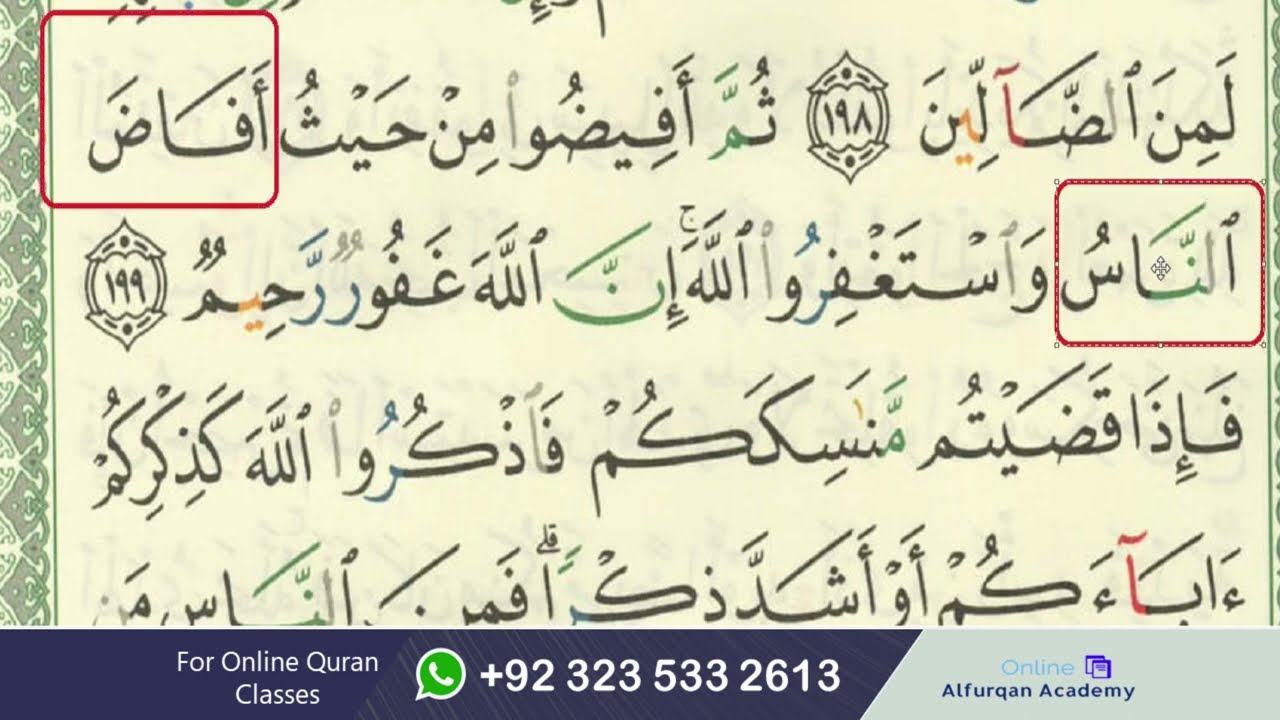 لَمِنَ ٱلضَّآلِّينَ ١٩٨ ثُمَّ أَفِيضُوا۟ مِنْ حَيْثُ أَفَاضَ
ٱلنَّاسُ وَٱسْتَغْفِرُوا۟ ٱللَّهَ ۚ إِنَّ ٱللَّهَ غَفُورٌ رَّحِيمٌ ١٩٩
فَإِذَا قَضَيْتُم مَّنَـٰسِكَكُمْ فَٱذْكُرُوا۟ ٱللَّهَ كَذِكْرِكُمْ
ءَابَآءَكُمْ أَوْ أَشَدَّ ذِكْرًا ۗ فَمِنَ ٱلنَّاسِ مَن
For Online Quran
Classes
+92 323 533 2613
Online
Alfurqan Academy